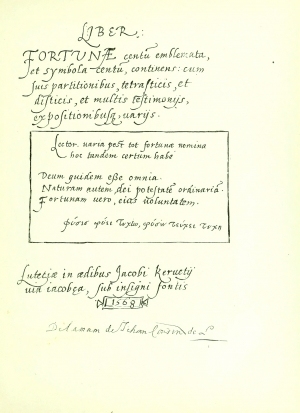 LIBER:
FORTUNÆ centũ emblemata,
et symbola centũ, continens: cum
suis partitionibus, tetrasticis, et
disticis, et multis testimonijs,
expositionibusq; varijs.
Lector. varia post tot fortunæ nomina
hoc tandem certum habe
Deum quidem eße omnia.
Naturam autem, dei potestatē ordinariā
Fortunam vero, eius voluntatem.
Lutetiæ in ædibus Jacobi Keruetij
via iacobęa, sub insigni fontis
1568
de Jehan Cousin de